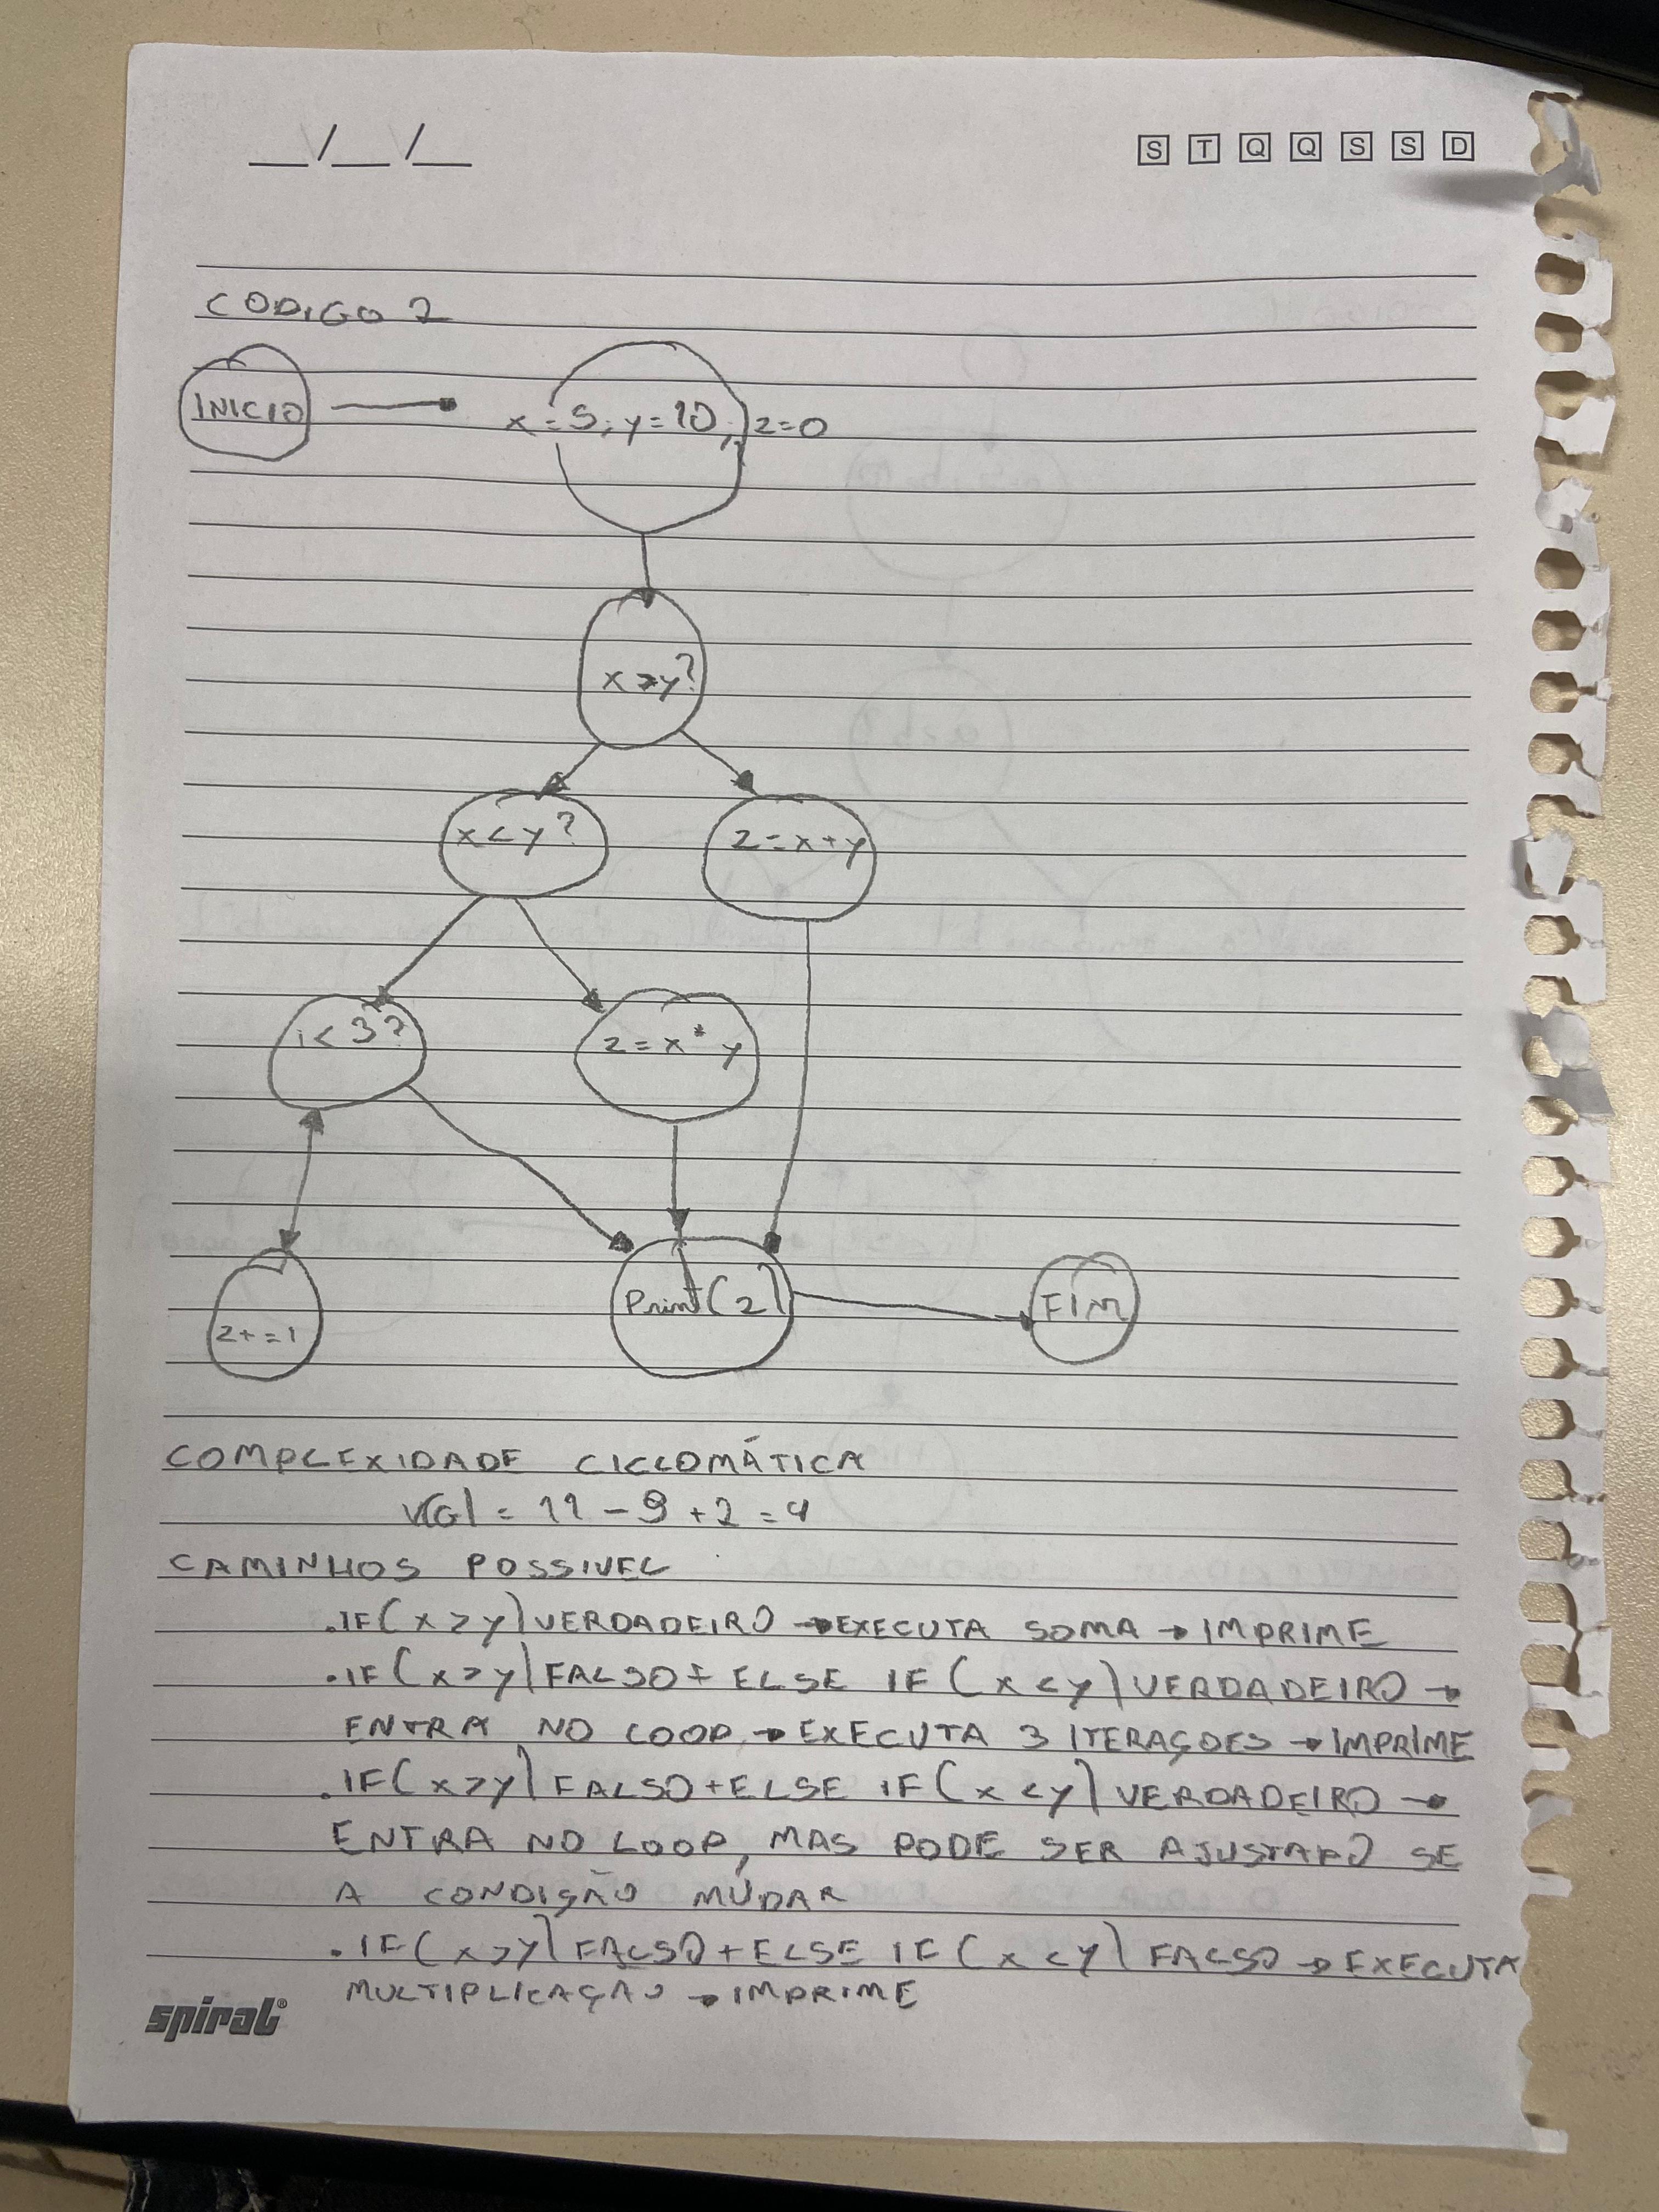 __/__/__
S T Q Q S S D
CODIGO 2
INICIO
x=5; y=10; z=0
x>y?
x<y?
z=x+y
i<3?
z=x*y
z+=1
Print(z)
FIM
COMPLEXIDADE CICLOMÁTICA
V(G) = 11 - 9 + 2 = 4
CAMINHOS POSSIVEL
.IF(x>y) VERDADEIRO → EXECUTA SOMA → IMPRIME
.IF(x>y) FALSO + ELSE IF(x<y) VERDADEIRO →
ENTRA NO LOOP → EXECUTA 3 ITERAÇOES → IMPRIME
.IF(x>y) FALSO + ELSE IF(x<y) VERDADEIRO →
ENTRA NO LOOP, MAS PODE SER AJUSTADO SE
A CONDIÇÃO MUDAR
.IF(x>y) FALSO + ELSE IF(x<y) FALSO → EXECUTA
MULTIPLICAÇÃO → IMPRIME
spiral®